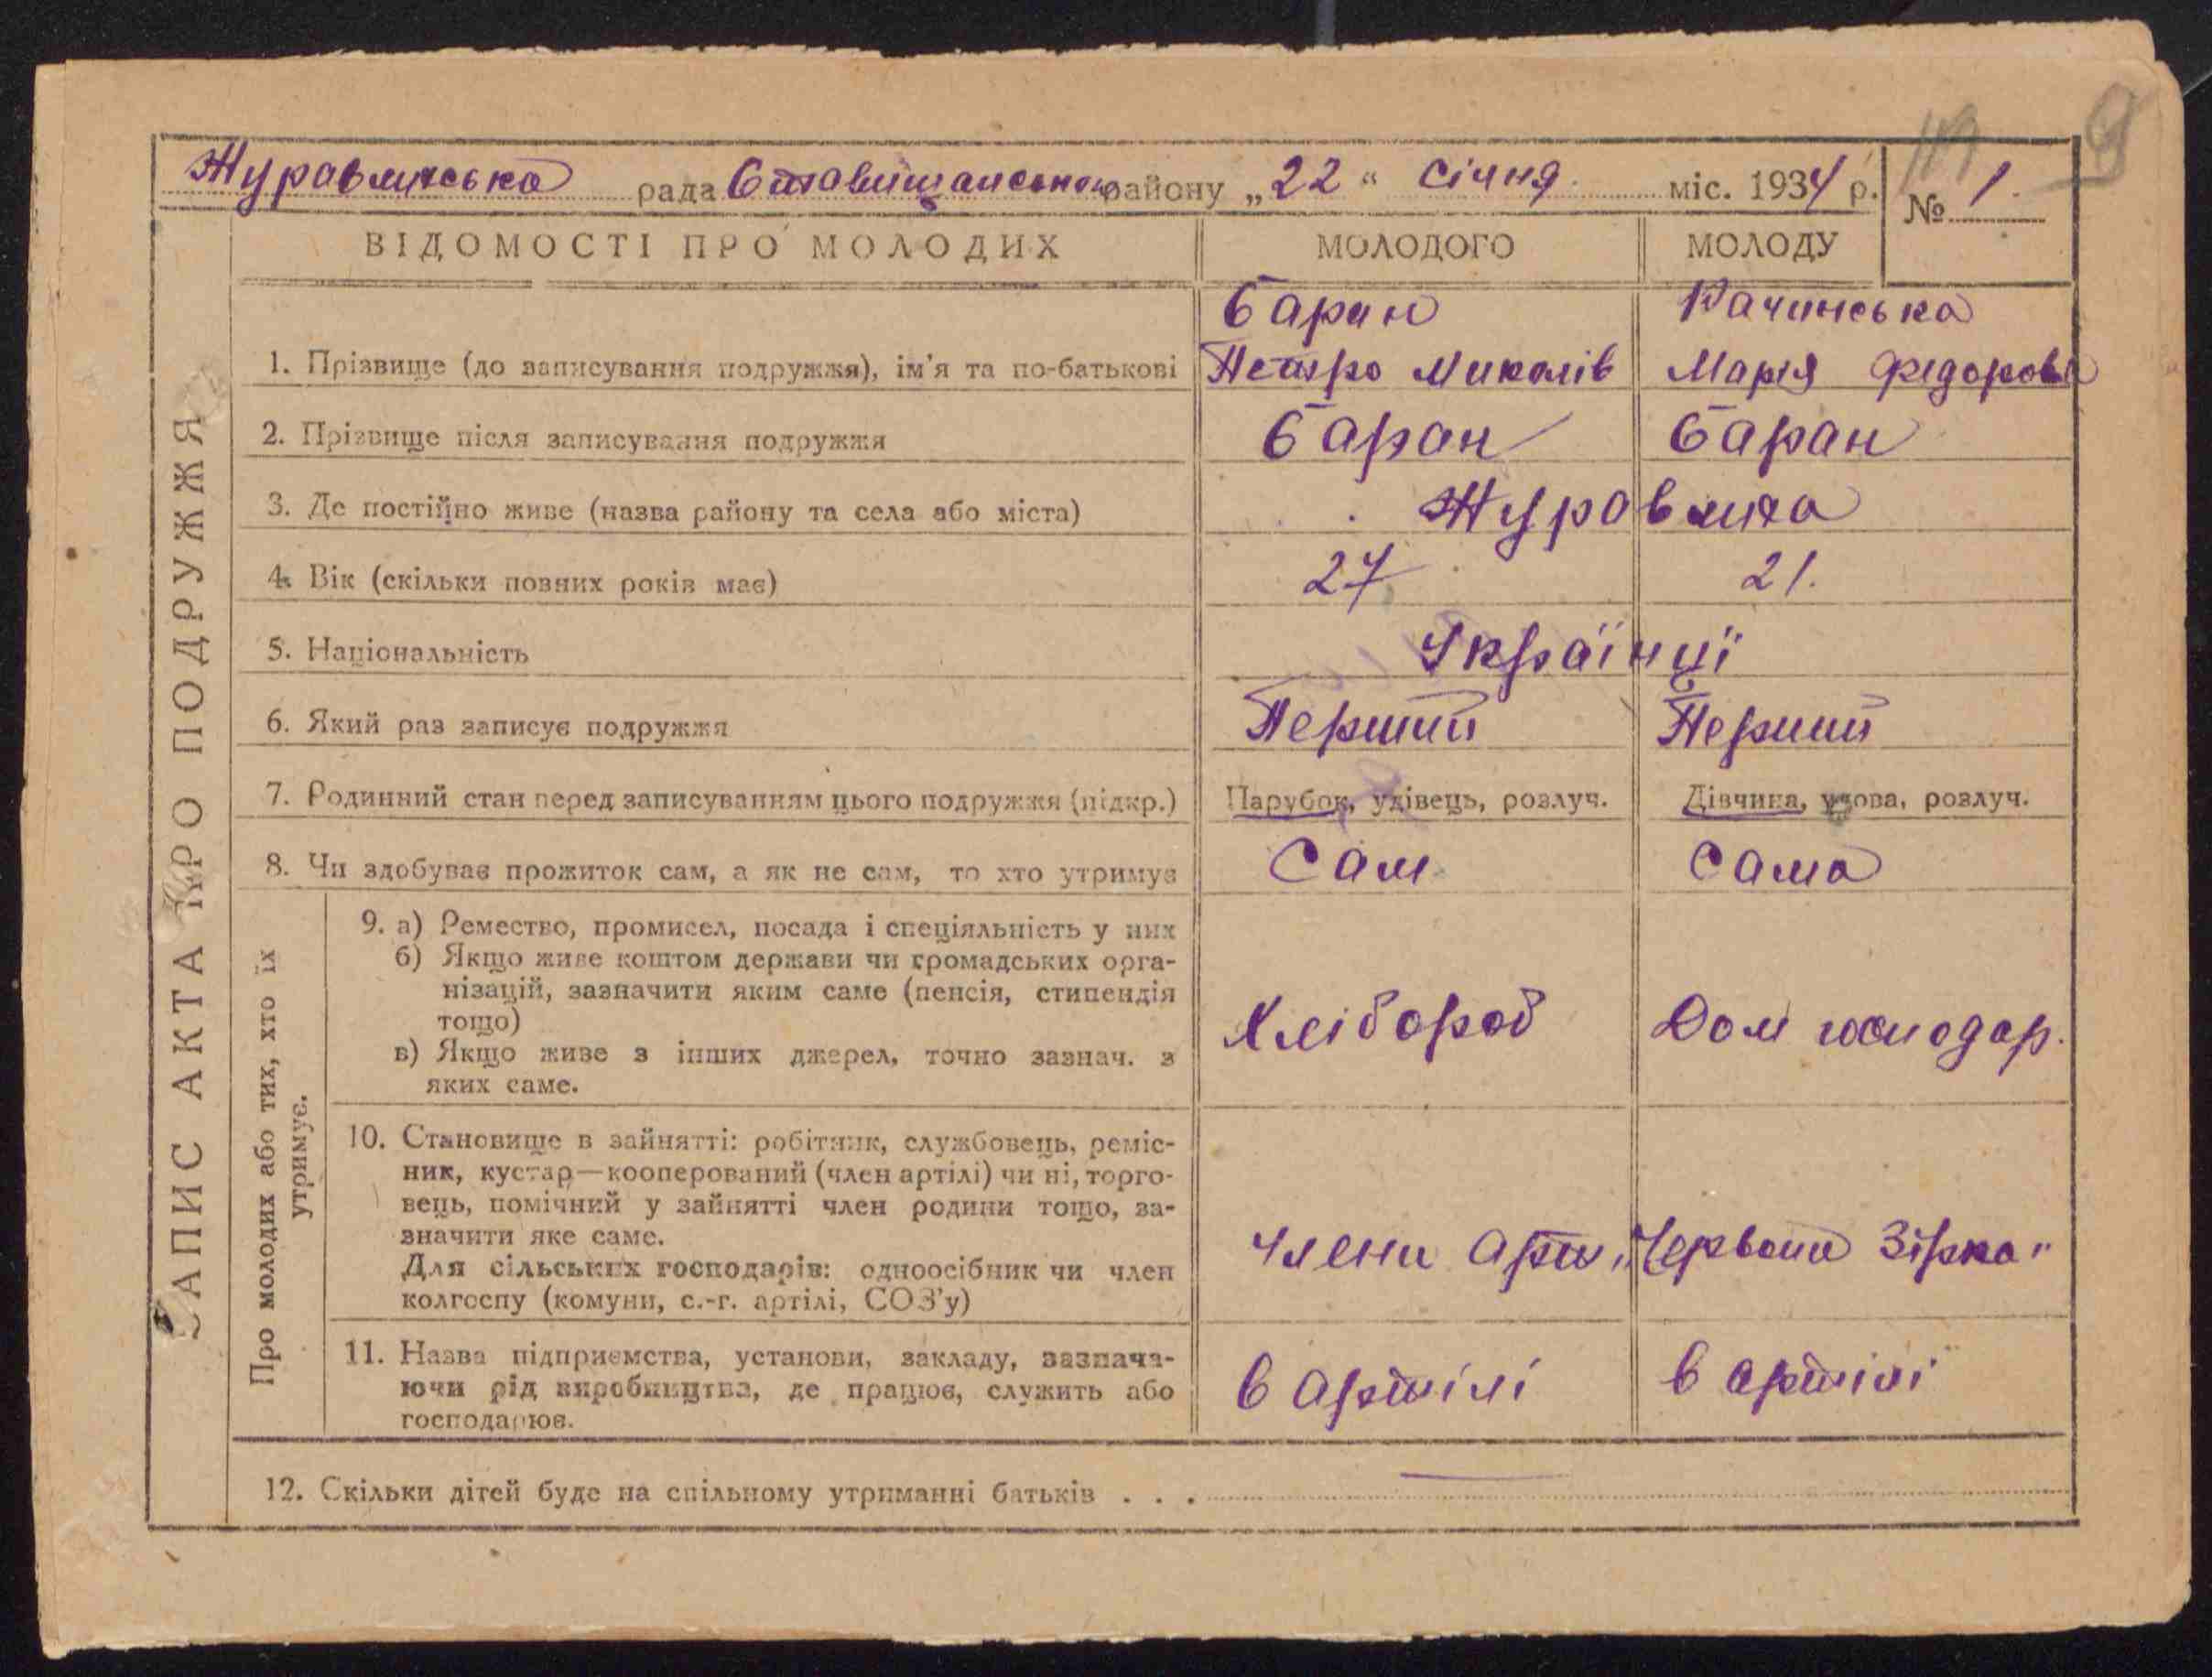 Журавлиська рада Ставищанського району „22“ січня міс. 1934 р.
№ 1.
9
ВІДОМОСТІ ПРО МОЛОДИХ МОЛОДОГО МОЛОДУ
Баран Рачинська
1. Прізвище (до записування подружжя), ім'я та по-батькові Петро Миколів Марія Федорова
2. Прізвище після записування подружжя Баран Баран
3. Де постійно живе (назва району та села або міста) Журавлиха
4. Вік (скільки повних років має) 27 21.
5. Національність Українці
6. Який раз записує подружжя Перший Перший
7. Родинний стан перед записуванням цього подружжя (підкр.) Парубок, удівець, розлуч. Дівчина, удова, розлуч.
8. Чи здобуває прожиток сам, а як не сам, то хто утримує Сам Сама
9. а) Ремество, промисел, посада і спеціяльність у них
б) Якщо живе коштом держави чи громадських орга-
нізацій, зазначити яким саме (пенсія, стипендія
тощо)
в) Якщо живе з інших джерел, точно зазнач. з
яких саме.
Хлібороб Дом господар.
10. Становище в зайнятті: робітник, службовець, реміс-
ник, кустар—кооперований (член артілі) чи ні, торго-
вець, помічний у зайнятті член родини тощо, за-
значити яке саме.
Для сільських господарів: одноосібник чи член
колгоспу (комуни, с.-г. артілі, СОЗ'у)
Члени Арт. „Червона Зірка"
11. Назва підприємства, установи, закладу, зазнача-
ючи рід виробництва, де працює, служить або
господарює.
в Артілі в артілі
12. Скільки дітей буде на спільному утриманні батьків . . .
ЗАПИС АКТА ПРО ПОДРУЖЖЯ
Про молодих або тих, хто їх
утримує.